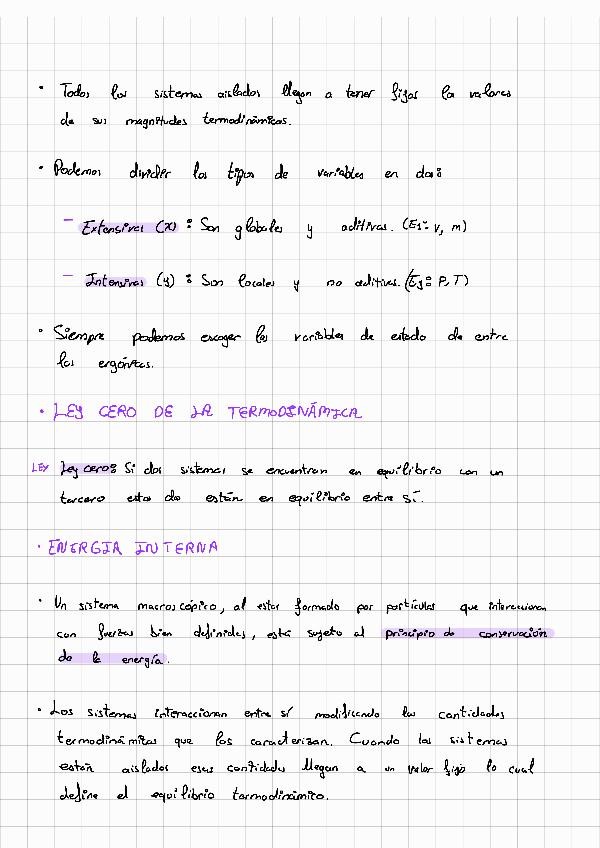 · Todos los sistemas aislados llegan a tener fijos los valores
de sus magnitudes termodinámicas.
· Podemos dividir los tipos de variables en dos:
- Extensivas (X): Son globales y aditivas. (Ej: V, m)
- Intensivas (Y): Son locales y no aditivas. (Ej: P, T)
· Siempre podemos escoger las variables de estado de entre
las ergónicas.
· LEY CERO DE LA TERMODINÁMICA
LEY Ley cero: Si dos sistemas se encuentran en equilibrio con un
tercero estos dos están en equilibrio entre sí.
· ENERGIA INTERNA
· Un sistema macroscópico, al estar formado por partículas que interaccionan
con fuerzas bien definidas, está sujeto al principio de conservación
de la energía.
· Los sistemas interaccionan entre sí modificando las cantidades
termodinámicas que los caracterizan. Cuando los sistemas
están aislados esas cantidades llegan a un valor fijo lo cual
define el equilibrio termodinámico.